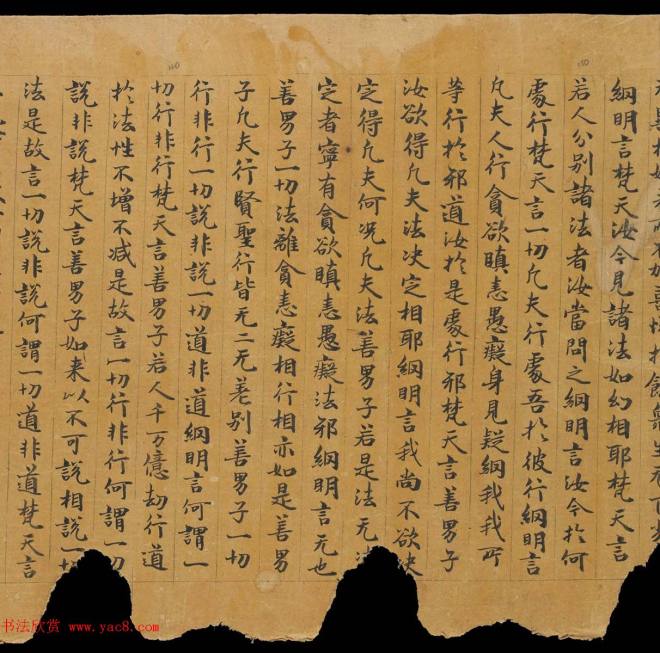 網明言梵天汝今見諸法如幻相耶梵天言
若人分別諸法者汝當問之網明言汝今於何
處行梵天言一切凡夫行處吾於彼行網明言
凡夫人行貪欲瞋恚愚癡身見疑網我我所
等行於邪道汝於是處行邪梵天言善男子
汝欲得凡夫法决定相耶網明言我尚不欲决
定得凡夫何况凡夫法善男子若是法无决
定者寧有貪欲瞋恚愚癡法邪網明言无也
善男子一切法離貪恚癡相行相亦如是善男
子凡夫行賢聖行皆无二无差別善男子一切
行非行一切說非說一切道非道網明言何謂一
切行非行梵天言善男子若人千万億劫行道
於法性不增不减是故言一切行非行何謂一切
說非說梵天言善男子如来以不可說相說一切
法是故言一切說非說何謂一切道非道梵天言
书法欣赏 www.yac8.com